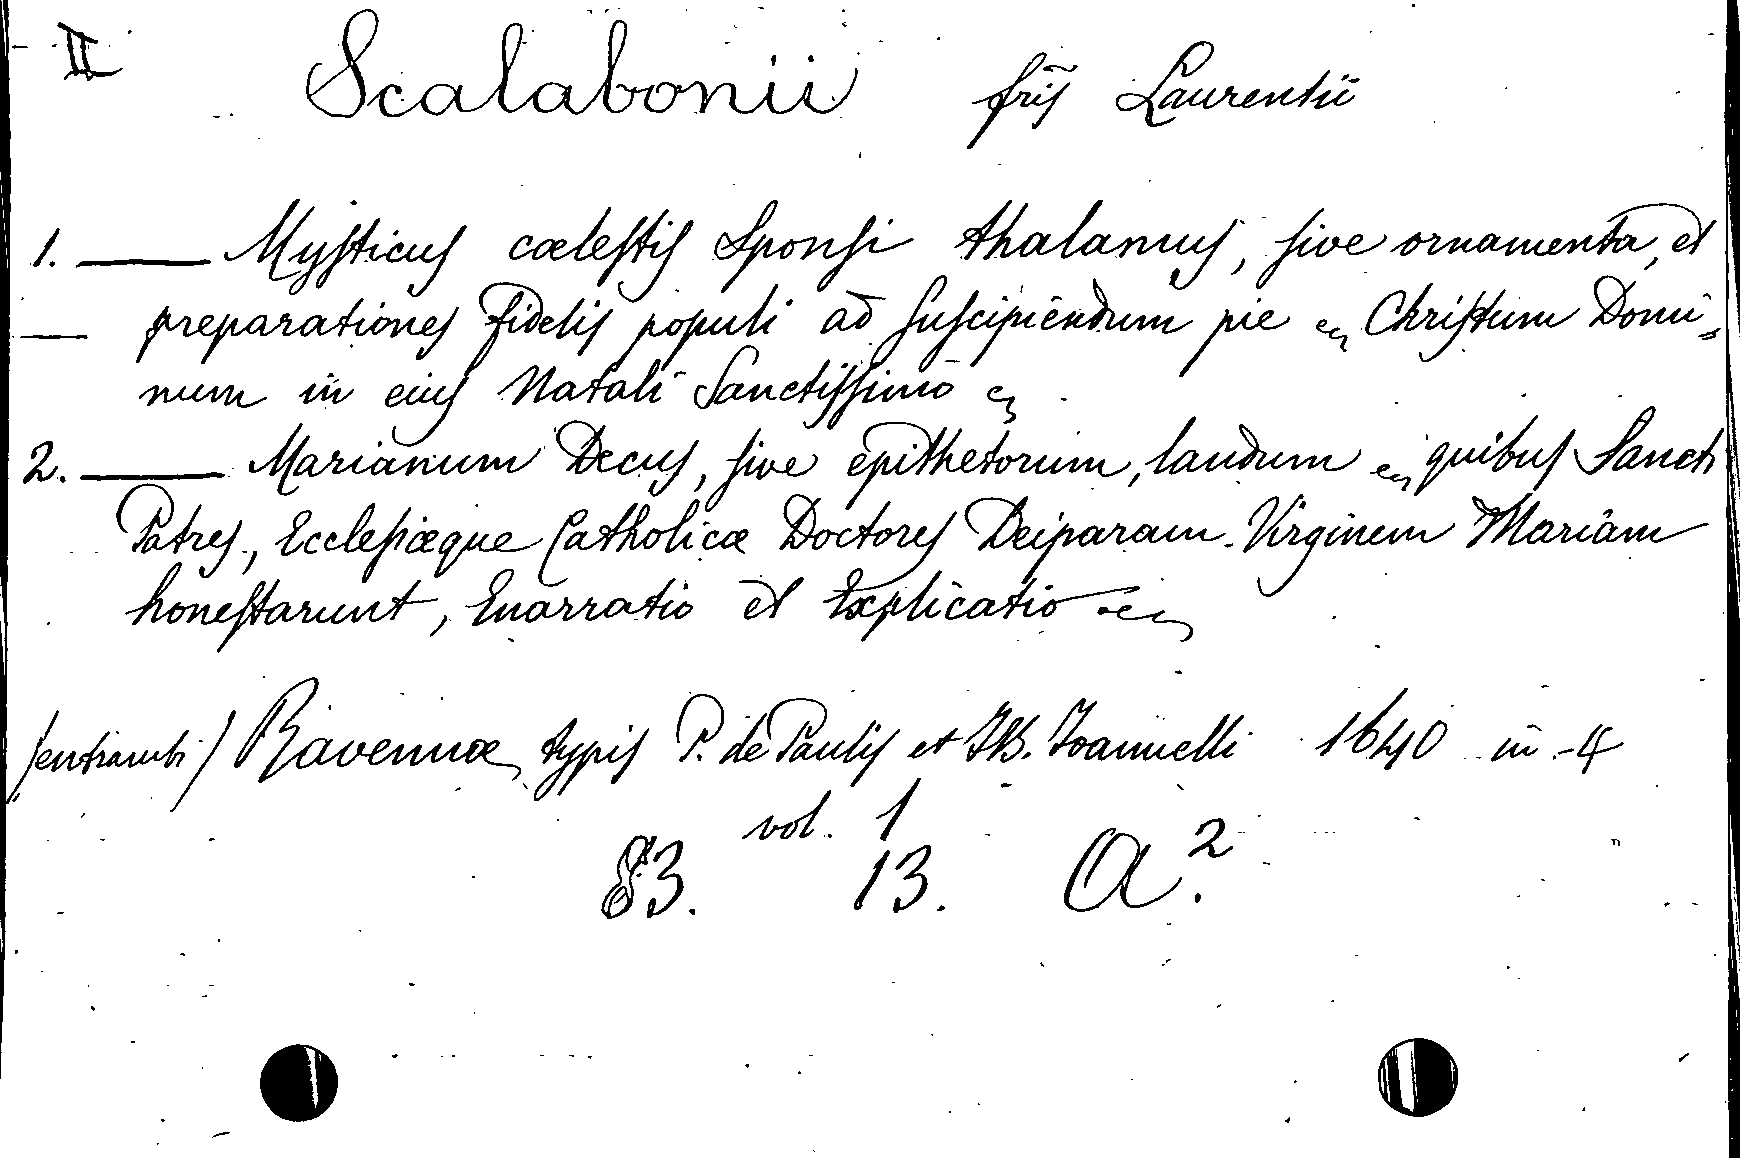 II Scalabonii frĩs Laurentii
1. —— Mysticus cælestis Sponsi thalamus, sive ornamenta, et
— preparationes fidelis populi ad suscipiendum pie &c Christum Domi=
num in eius Natali Sanctissimo &c
2. —— Marianum Decus, sive epithetorum, laudum &c, quibus Sancti
Patres, Ecclesiæque Catholicæ Doctores Deiparam Virginem Mariam
honestarunt, Enarratio et Explicatio &c
(entrambi) Ravennæ, typis P. de Paulis et JB. Joannelli 1640 in-4
vol. 1
83. 13. A².